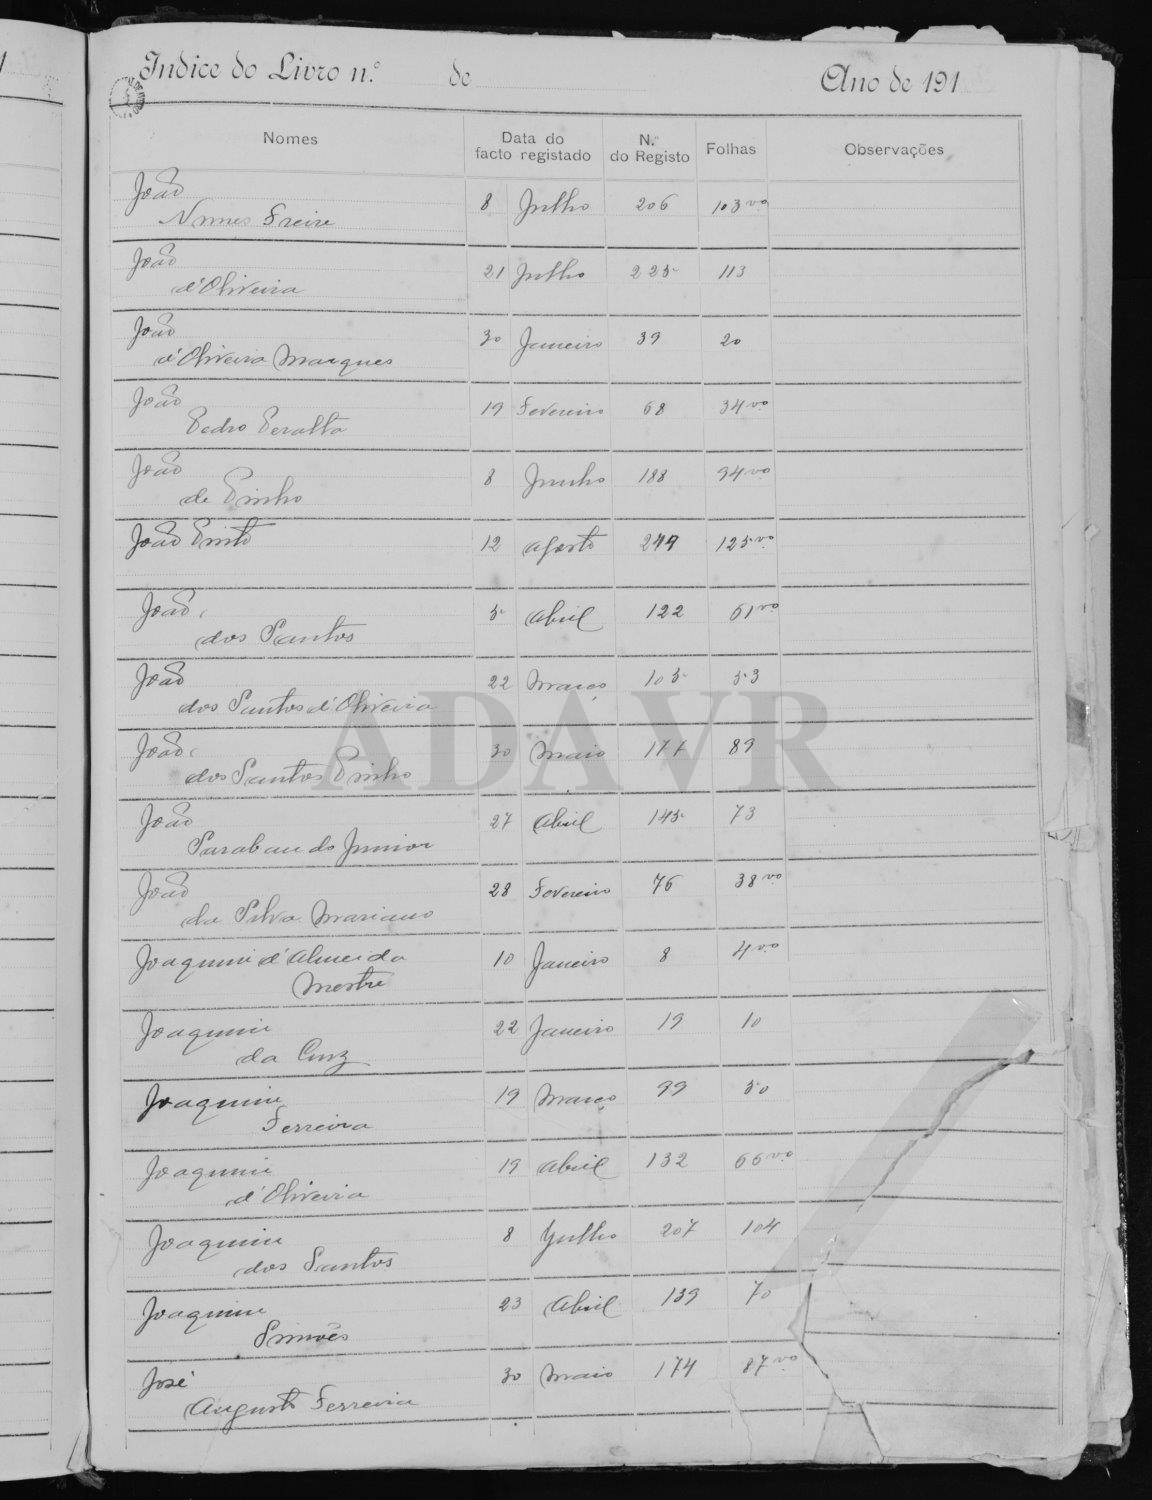 Indice do Livro n.º de Ano de 191
Nomes Data do facto registado N.º do Registo Folhas Observações
João
Nunes Freire 8 Julho 206 103 vº
João
d'Oliveira 21 Julho 225 113
João
d'Oliveira Marques 30 Janeiro 39 20
João
Pedro Peralta 19 Fevereiro 68 34 vº
João
de Pinho 8 Junho 188 94 vº
João Pinto 12 Agosto 249 125 vº
João
dos Santos 5 Abril 122 61 vº
João
dos Santos d'Oliveira 22 Março 105 53
João
dos Santos Pinho 30 Maio 177 89
João
Sarabando Junior 27 Abril 145 73
João
da Silva Mariano 28 Fevereiro 76 38 vº
Joaquim d'Almeida
Mestre 10 Janeiro 8 4 vº
Joaquim
da Cruz 22 Janeiro 19 10
Joaquim
Ferreira 19 Março 99 50
Joaquim
d'Oliveira 19 Abril 132 66 vº
Joaquim
dos Santos 8 Julho 207 104
Joaquim
Simões 23 Abril 139 70
José
Augusto Ferreira 30 Maio 174 87 vº
ADAVR